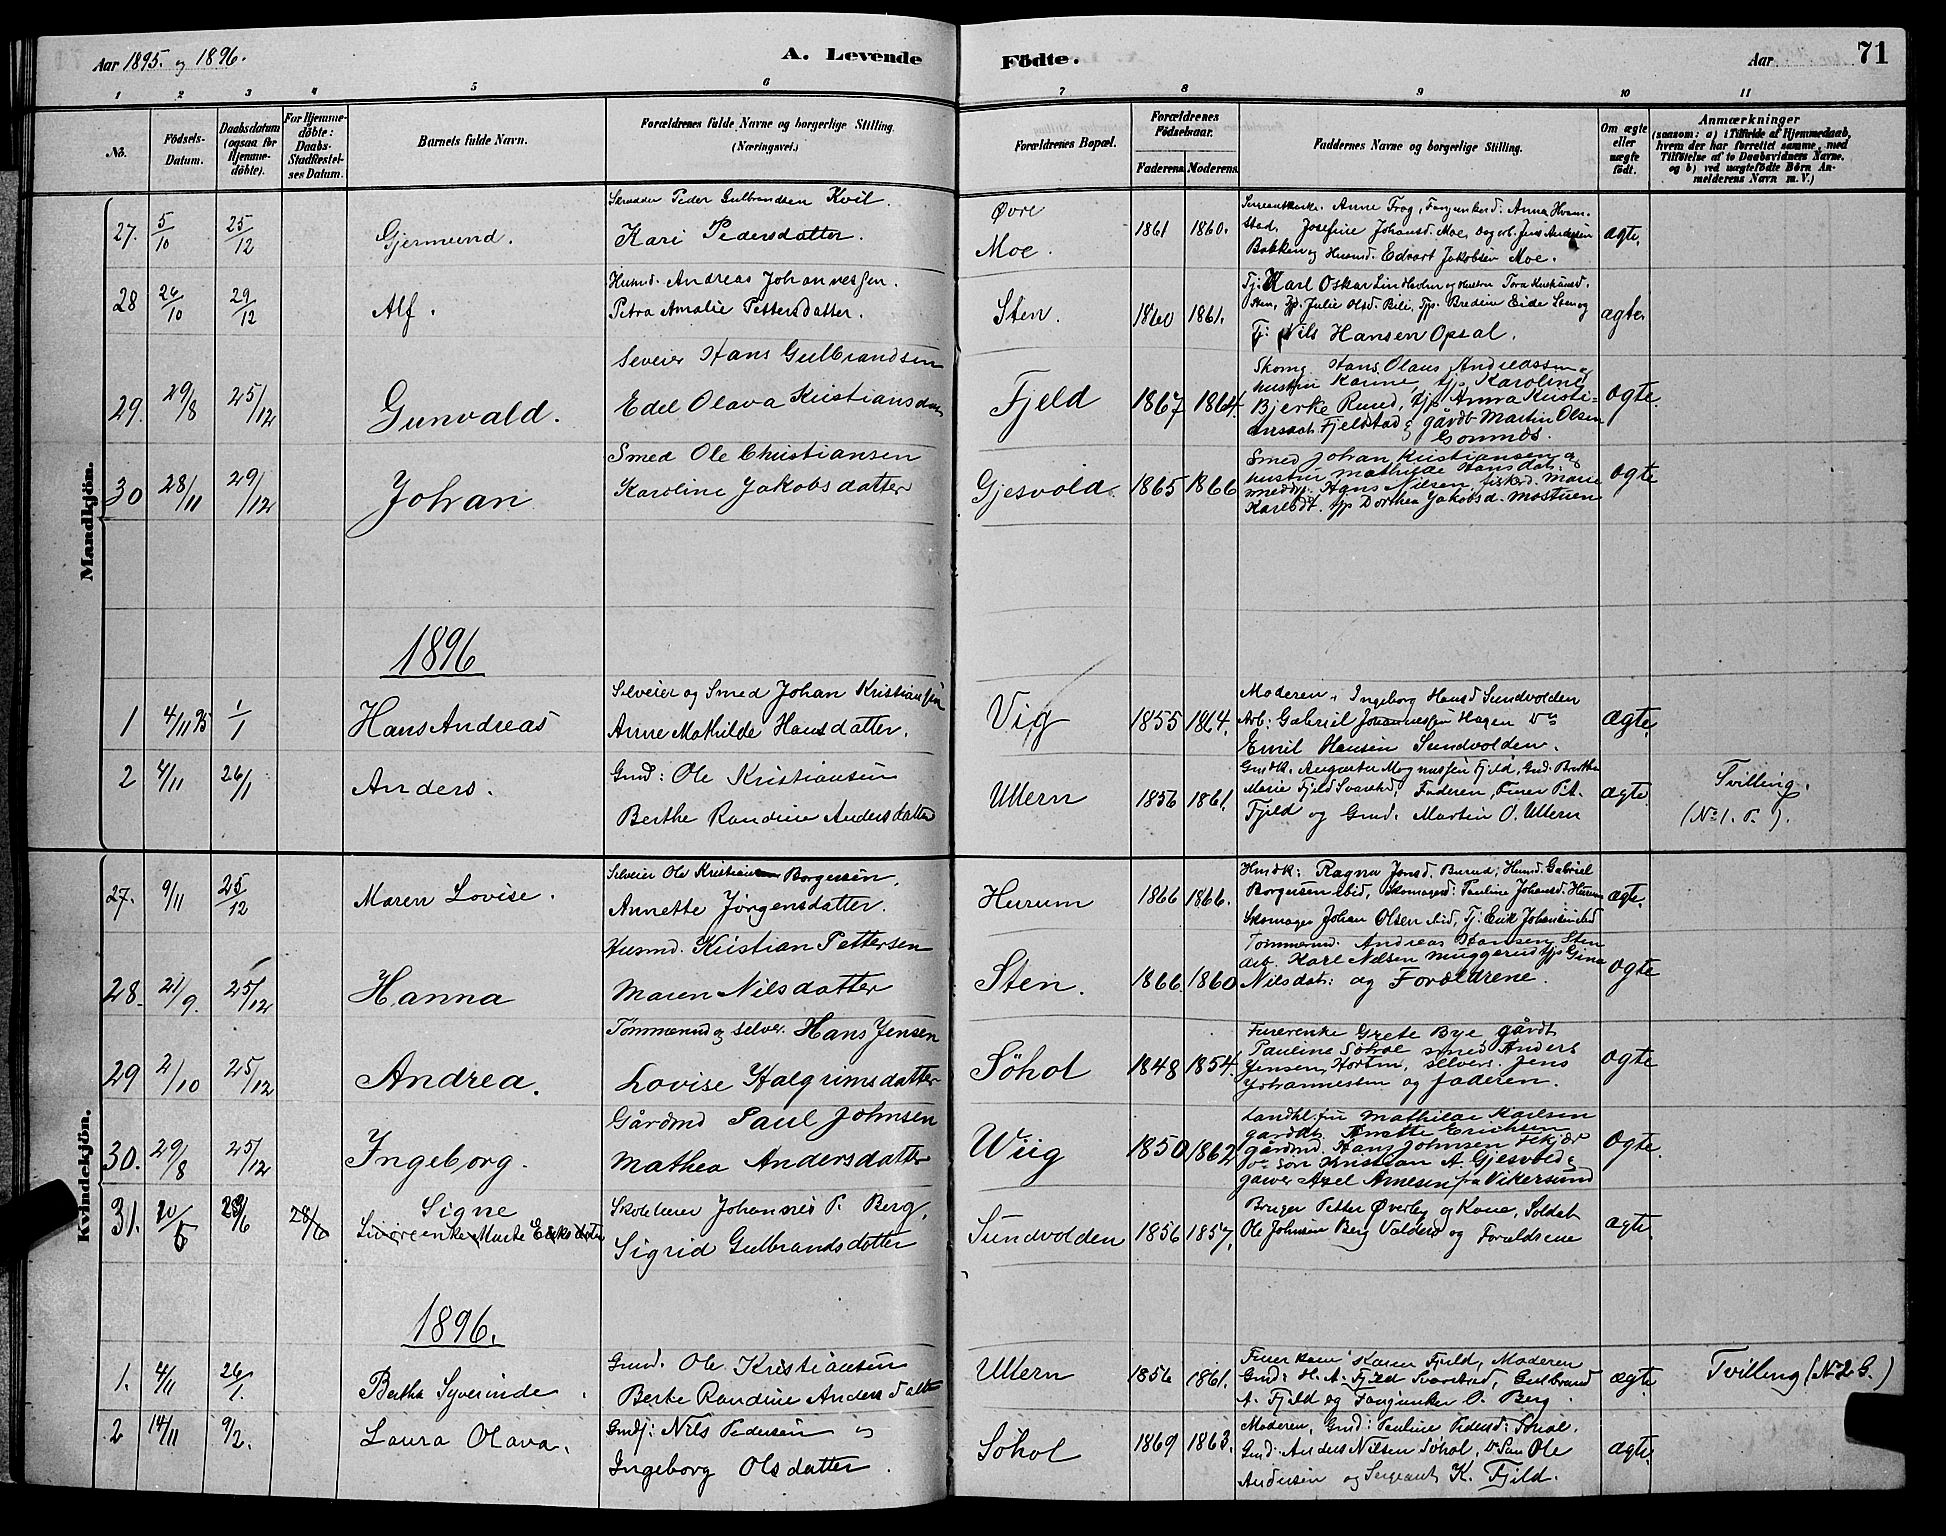 Aar 1895. og 1896.
A. Levende Födte.
Aar
71
1 2 3 4 5 6 7 8 9 10 11
No.
Födsels-Datum.
Daabsdatum (ogsaa for Hjemme-döbte).
For Hjemme-döbte: Daabs-Stadfæstel-ses Datum.
Barnets fulde Navn.
Forældrenes fulde Navne og borgerlige Stilling. (Næringsvei.)
Forældrenes Bopæl.
Forældrenes Födselsaar.
Faderens. Moderens.
Faddernes Navne og borgerlige Stilling.
Om ægte eller uægte födt.
Anmærkninger (saasom: a) i Tilfælde af Hjemmedaab, hvem der har forrettet samme, med Tilföielse af to Daabsvidners Navne. og b) ved uægtefödte Börn An-melderens Navn m. V.)
Mandkjön.
27. 5/10 25/12 Gjermund.
Peder Gulbrandsen Kvil.
Kari Pedersdatter.
Øvre Moe.
1861 1860.
Anne Frog, Anna Hvam-
stad, Josefine Johansd. Moe, Jens Andersen
Bakken og Husmd. Edvart Jakobsen Moe.
ægte.
28 26/10 29/12 Alf.
Husmd. Andreas Johannessen.
Petra Amalie Pettersdatter.
Sten.
1860 1861.
Tj. Karl Oskar Lindholm og Hustru Tora
Sten, Julie Olsd. Bili, Eide Sten og
Tj: Nils Hansen Opsal.
ægte.
29. 29/8 25/12 Gunvald.
Seveier Hans Gulbrandsen
Edel Olava Kristiansdat
Fjeld
1867 1864.
Skomg Hans Olaus Andreassen og
hustru Karine, tjp Karoline
Bjerke Rund, tjp Anna Kristi-
ansdat. Fjeldstad og gårdb Martin Olsen
ægte.
30 28/11 29/12 Johan
Smed Ole Christiansen
Karoline Jakobsdatter
Gjesvold.
1865 1866
Smed Johan Kristiansen og
hustru Mathilde Hansdat:
Hans Nilsen, Marie
Karlsdt. tjp Dorthea Jakobsd. Mostuen
ægte
1896
1 4/11 95 1/1 Hans Andreas
Selveier og Smed Johan Kristiansen
Anne Mathilde Hansdatter.
Vig
1855 1864.
Moderen, Ingeborg Hansd Sundvolden
Arb: Gabriel Johannessen Hagen
Emil Hansen Sundvolden.
ægte.
2 4/11 26/1 Anders.
Gmd: Ole Kristiansen
Berthe Randine Andersdatter
Ullern
1856 1861.
Fjeld, Gmd. Berthe
Marie Fjeld Svarstad, Faderen,
Fjeld og Gmd. Martin O. Ullern
ægte
Tvilling.
(No 1. P.).
Kvindekjön.
27. 9/11 25/12 Maren Lovise.
Selveier Ole Kristian Borgersen,
Annette Jörgensdatter.
Hurum
1866 1866.
Ragna Jensd. Husmd. Gabriel
Borgersen ibid, Skomagerd: Pauline Johansd. Hurum
Skomager Johan Olsen ibid, Tj: Erik Johansen ibid
ægte.
28. 21/9. 25/12 Hanna
Husmd. Kristian Pettersen
Maren Nilsdatter
Sten.
1866. 1860
Tømmermd. Andreas Hansen Sten
arb. Karl Nilsen Muggerud tjp Gina
Nilsdat: og Forældrene.
ægte
29 2/10 25/12 Andrea.
Tømmermd og selvei. Hans Jensen
Lovise Halgrimsdatter
Søhol
1848 1854.
Grete Bye gårdt
Pauline Søhol smed Anders
Jensen Horten, selvei. Jens
Johannessen og faderen.
ægte
30. 29/8 25/12 Ingeborg.
Gårdmd Paul Johnsen
Mathea Andersdatter
Wiig
1850 1862
Landhl. fru Mathilde Karlsen
gårddt. Anette Erichsen
gårdmd. Hans Johnsen
søn Kristian A. Gjesvold og
garver Axel Arnesen fra Vikersund
ægte.
31. 20/5 28/6 Signe
Skolelærer Johannes P. Berg,
Sigrid Gulbrandsdatter
Sundvolden
1856 1857.
Bruger Petter Øverby og Kone, Soldat
Ole Johnsen Berg Valders og Forældrene
ægte.
1896.
1. 4/11 26/1. Bertha Syverinde.
Gmd. Ole Kristiansen
Berte Randine Andersdatter
Ullern
1856 1861.
Karen Fjeld, Moderen
Gmd: H. A. Fjeld Svarstad, Gulbrand
A. Fjeld og Fanejunker O. Berg.
ægte
Tvilling (No 2 G.)
2 14/11 9/2. Laura Olava.
Gmd: Nils Pedersen og
Ingeborg Olsdatter.
Søhol
1869 1863.
Moderen, Gmd: Pauline Pedersd: Søhol.
Gmd. Anders Nilsen Søhol, Ole
Andersen og Sergeant K. Fjeld.
ægte.